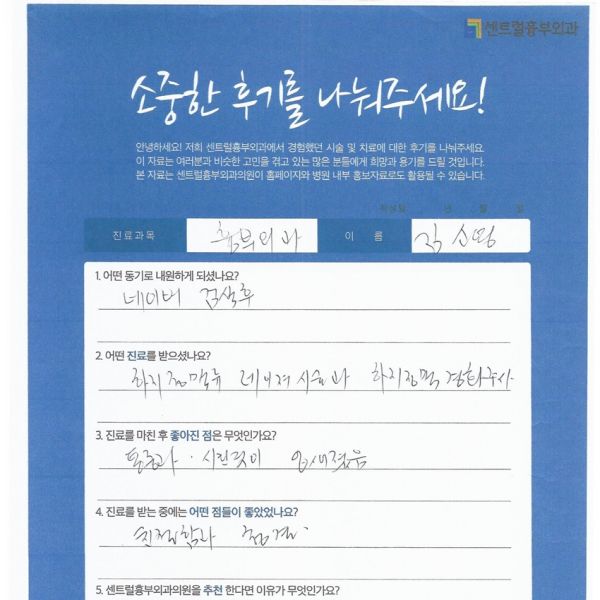 센트럴흉부외과
소중한 후기를 나눠주세요!
안녕하세요! 저희 센트럴흉부외과에서 경험했던 시술 및 치료에 대한 후기를 나눠주세요.
이 자료는 여러분과 비슷한 고민을 겪고 있는 많은 분들에게 희망과 용기를 드릴 것입니다.
본 자료는 센트럴흉부외과의원이 홈페이지와 병원 내부 홍보자료로도 활용될 수 있습니다.
작성일 년 월 일
진료과목 흉부외과 이 름 김
1. 어떤 동기로 내원하게 되셨나요?
네이버 검색후
2. 어떤 진료를 받으셨나요?
하지정맥류 레이져시술과 하지정맥 경화주사
3. 진료를 마친 후 좋아진 점은 무엇인가요?
통증과 · 시린것이 없어졌음
4. 진료를 받는 중에는 어떤 점들이 좋았었나요?
친절함과 청결
5. 센트럴흉부외과의원을 추천 한다면 이유가 무엇인가요?